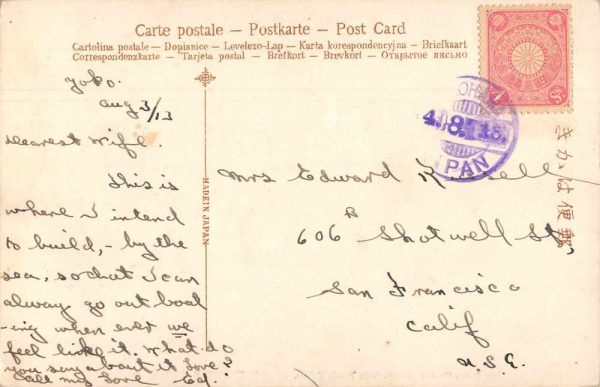 Carte postale – Postkarte – Post Card
Cartolina postale – Dopisnice – Levelezo-Lap – Karta korespondencyjna – Briefkaart
Correspondenzkarte – Tarjeta postal – Brefkort – Brevkort – Открытое письмо
Yoko.
Aug 3/13
Dearest Wife.
This is
where I intend
to build,- by the
sea, so that I can
alway go out boat
-ing when ever we
feel like it. What-do
you say a bout it Love?
All my Love Ed.
MADE IN JAPAN
4.8.13.
PAN
きかは便郵
Mrs Edward
606 B Shotwell St,
San Francisco
Calif
U.S.A.